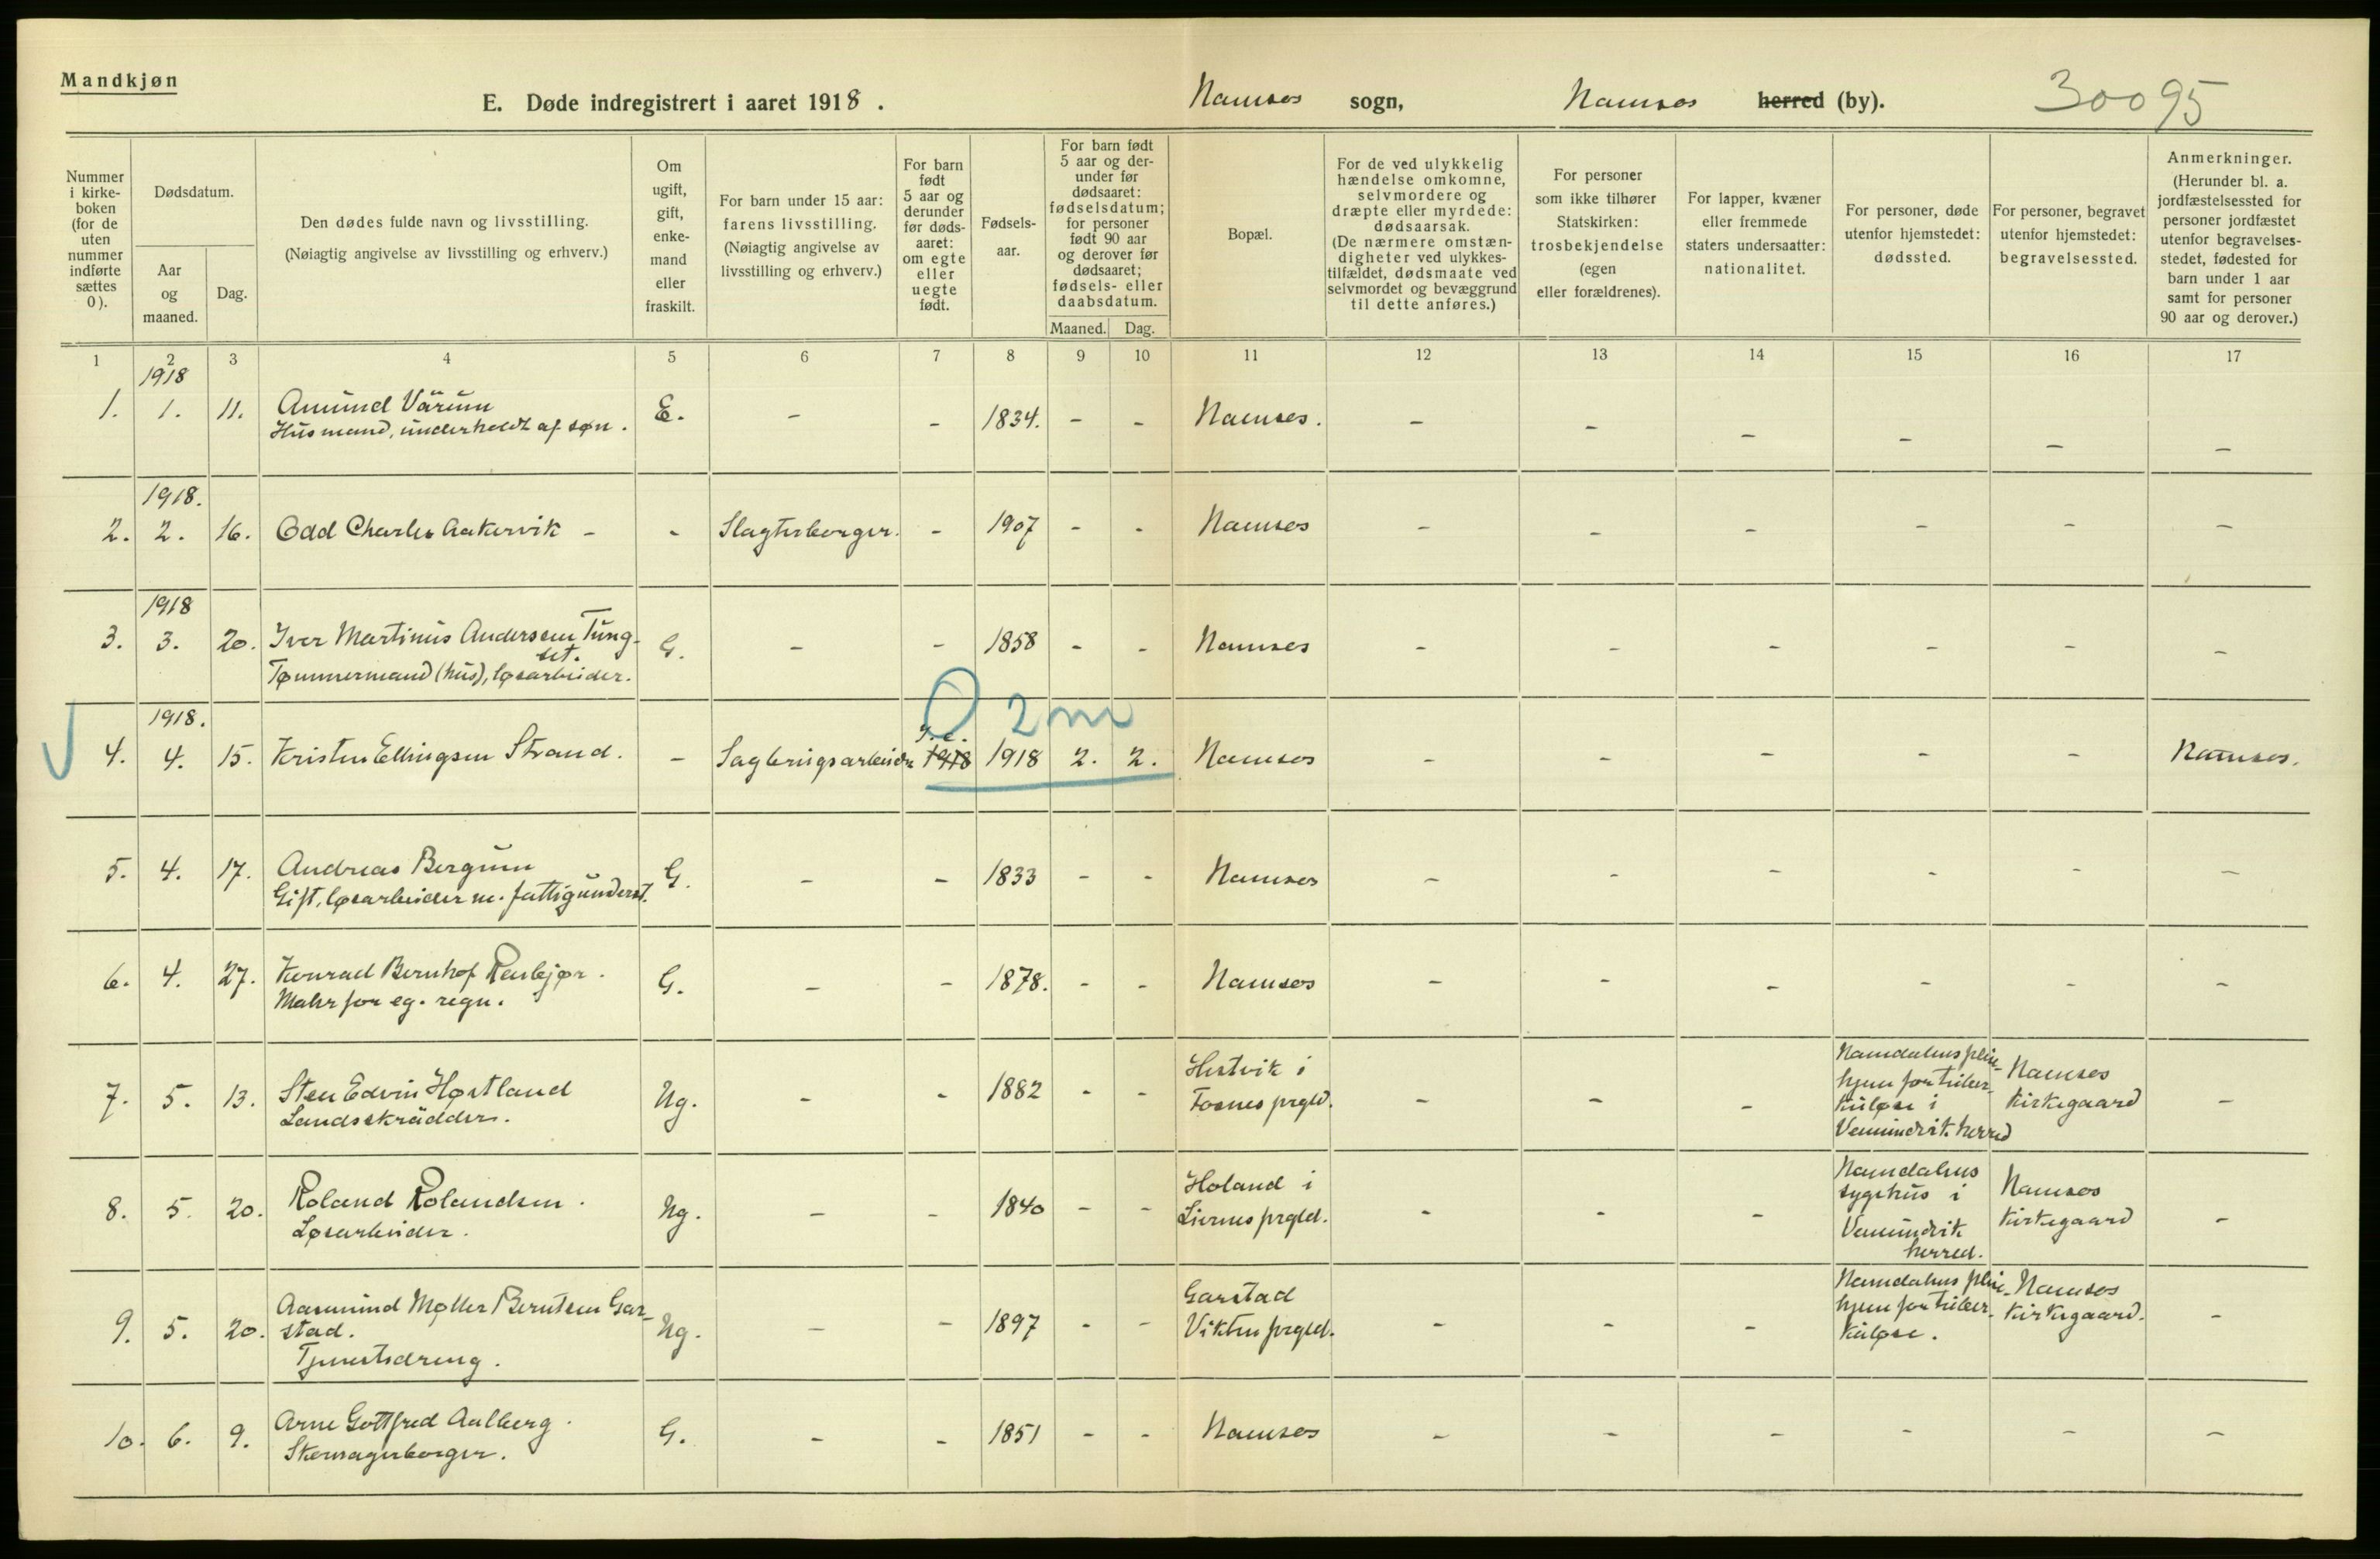 Mandkjøn
E. Døde indregistrert i aaret 1918. Namsos sogn, Namsos herred (by). 30095
Nummer i kirke-boken (for de uten nummer indførte sættes 0).
Dødsdatum.
Aar og maaned.
Dag.
Den dødes fulde navn og livsstilling.
(Nøiagtig angivelse av livsstilling og erhverv.)
Om ugift, gift, enke-mand eller fraskilt.
For barn under 15 aar: farens livsstilling. (Nøiagtig angivelse av livsstilling og erhverv.)
For barn født 5 aar og derunder før døds-aaret: om egte eller uegte født.
Fødsels-aar.
For barn født 5 aar og der-under før dødsaaret: fødselsdatum; for personer født 90 aar og derover før dødsaaret; fødsels- eller daabsdatum.
Maaned. Dag.
Bopæl.
For de ved ulykkelig hændelse omkomne, selvmordere og dræpte eller myrdede: dødsaarsak. (De nærmere omstæn-digheter ved ulykkes-tilfældet, dødsmaate ved selvmordet og bevæggrund til dette anføres.)
For personer som ikke tilhører Statskirken: trosbekjendelse (egen eller forældrenes).
For lapper, kvæner eller fremmede staters undersaatter: nationalitet.
For personer, døde utenfor hjemstedet: dødssted.
For personer, begravet utenfor hjemstedet: begravelsessted.
Anmerkninger. (Herunder bl. a. jordfæstelsessted for personer jordfæstet utenfor begravelses-stedet, fødested for barn under 1 aar samt for personer 90 aar og derover.)
1 2 3 4 5 6 7 8 9 10 11 12 13 14 15 16 17
1918
1. 1. 11. Amund Värum E. - - 1834. - - Namsos. - - - - - -
Husmand, underholdt af søn.
1918.
2. 2. 16. Odd Charles Aakervik - - Slagterborger. - 1907 - - Namsos - - - - - -
1918
3. 3. 20. Iver Martinus Andersen Tung- G. - - 1858 - - Namsos - - - - - -
set.
Tømmermand (hus), løsarbeider.
1918. 2 m
4. 4. 15. Kristen Ellingsen Strand. - Sagbrugsarbeider 1918 1918 2. 2. Namsos - - - - - Namsos.
5. 4. 17. Andreas Bergum G. - - 1833 - - Namsos - - - - - -
Gift, løsarbeider m. fattigunderst.
6. 4. 27. Konrad Bernhof Renbjør. G. - - 1878. - - Namsos - - - - - -
Maler for eg. regn.
7. 5. 13. Sten Edvin Høstland Ug. - - 1882 - - Hestvik i Fosnes prgld. - - - Namdalens pleie-hjem for tuber-kuløse i Vemundvik herred Namsos Kirkegaard -
Landsskrädder.
8. 5. 20. Roland Rolandsen. Ug. - - 1840 - - Holand i Liernes prgld. - - - Namdalens sygehus i Vemundvik herred. Namsos Kirkegaard -
Løsarbeider.
9. 5. 20. Aasmund Møller Berntsen Gar- Ug. - - 1897 - - Garstad Vikten prgld. - - - Namdalens pleie-hjem for tuber-kuløse. Namsos Kirkegaard. -
stad.
Tjenestedreng.
10. 6. 9. Arne Gottfred Aalberg. G. - - 1851 - - Namsos - - - - - -
Skomagerborger.